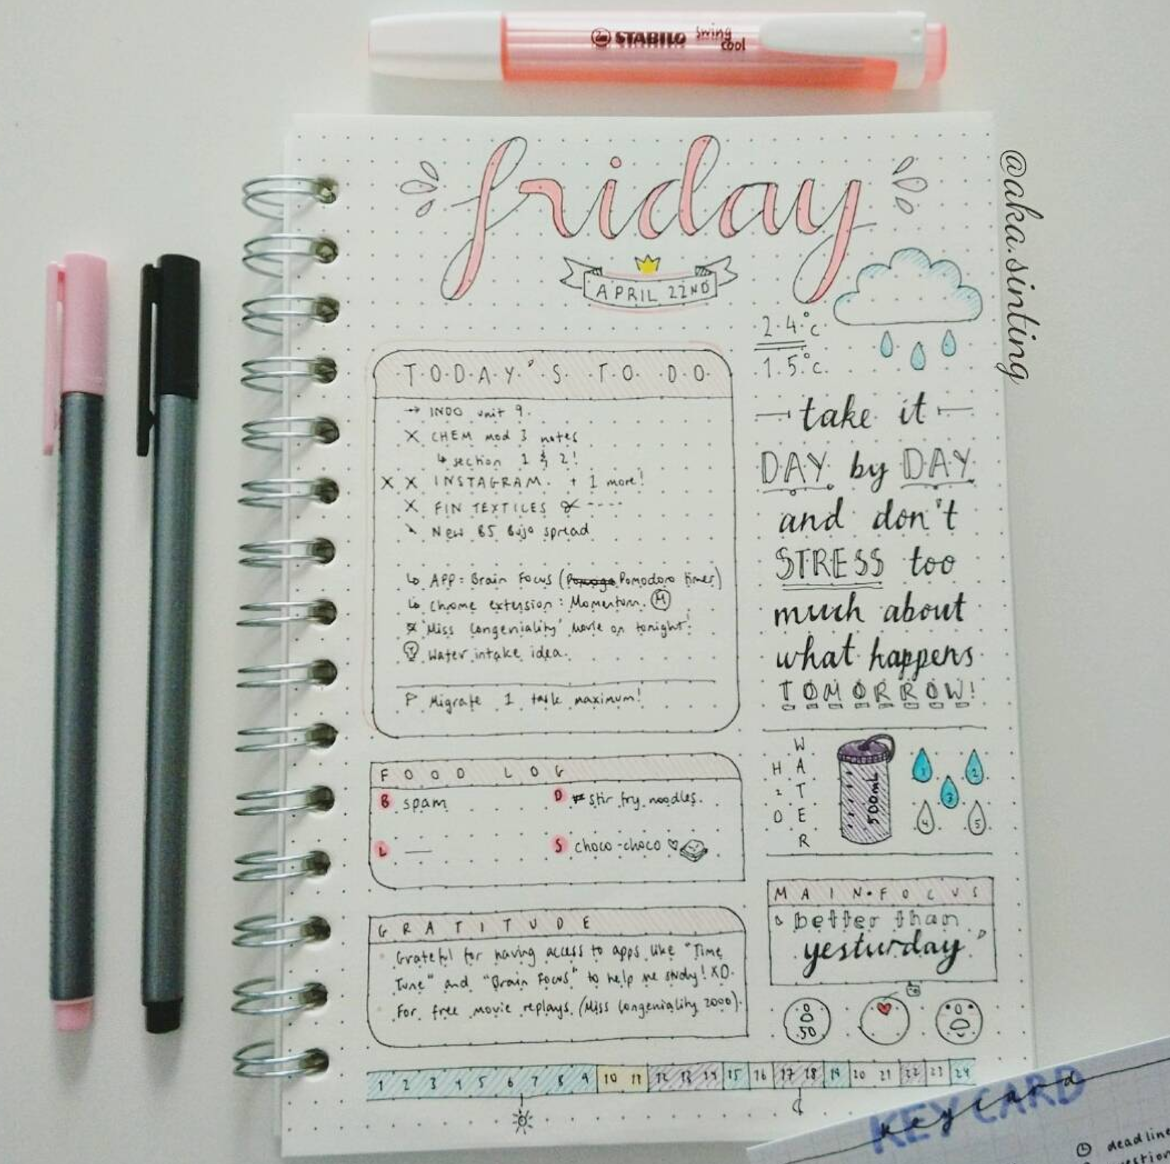 STABILO swing cool
friday
APRIL 22ND
@aka.sinting
2.4.°c
1.5.°c.
TODAY'S TO DO
→ INDO unit 9.
X CHEM mod 3 notes
↳ section 1 & 2!
X X INSTAGRAM. + 1 more!
X FIN TEXTILES
New B5 Bujo spread
↳ APP: Brain Focus (Pomodoro timer)
↳ Chrome extension: Momentum. (M)
'Miss Congeniality' Movie on tonight!
Water intake idea.
P Migrate 1 task maximum!
take it
DAY by DAY
and don't
STRESS too
much about
what happens
TOMORROW!
FOOD LOG
B spam
D stir fry noodles.
L —
S choco-choco ♡
H2O
WATER
500mL
1 2
3
4 5
MAIN FOCUS
better than
yesturday
GRATITUDE
Grateful for having access to apps like "Time
Tune" and "Brain Focus" to help me study! XD.
For free movie replays. (Miss Congeniality 2000).
50
1 2 3 4 5 6 7 8 9 10 11 12 13 14 15 16 17 18 19 20 21 22 23 24
KEY CARD
keycard
deadline